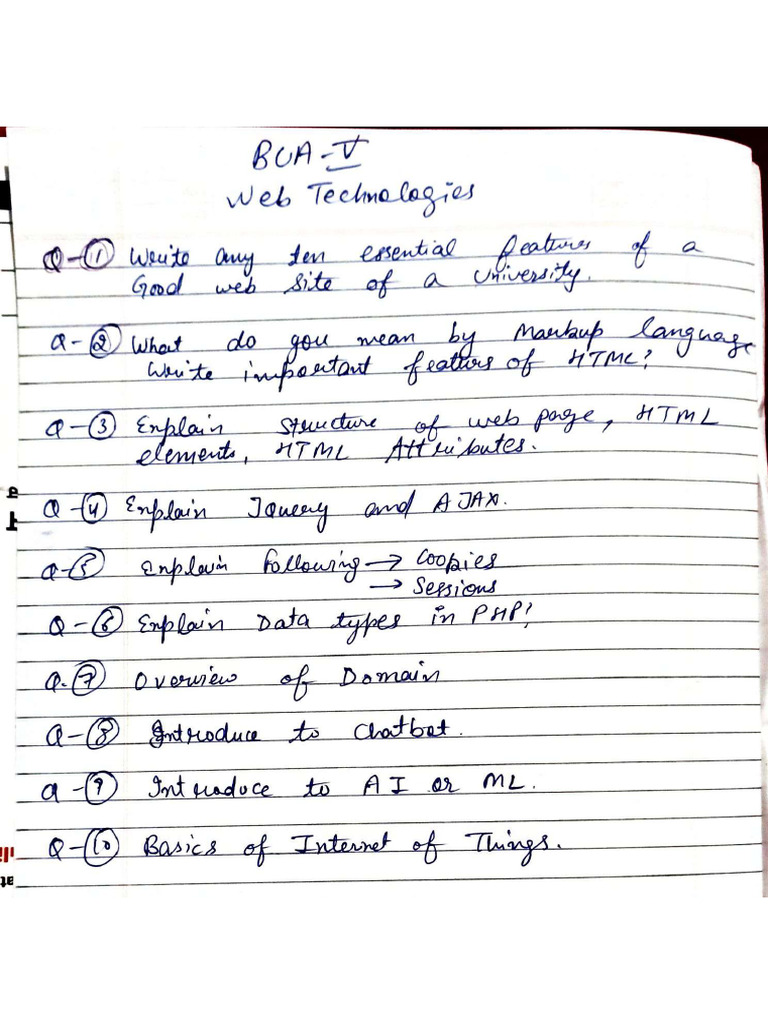 BCA-V
Web Technologies
Q-(1) Write any ten essential features of a
Good web site of a University.
Q-(2) What do you mean by Markup language
Write important featurs of HTML?
Q-(3) Explain structure of web page, HTML
elements, HTML Attributes.
Q-(4) Explain JQuery and AJAX.
Q-(5) Explain following → Cookies
→ Sessions
Q-(6) Explain Data types in PHP?
Q-(7) Overview of Domain
Q-(8) Introduce to Chatbot.
Q-(9) Introduce to AI or ML.
Q-(10) Basics of Internet of Things.